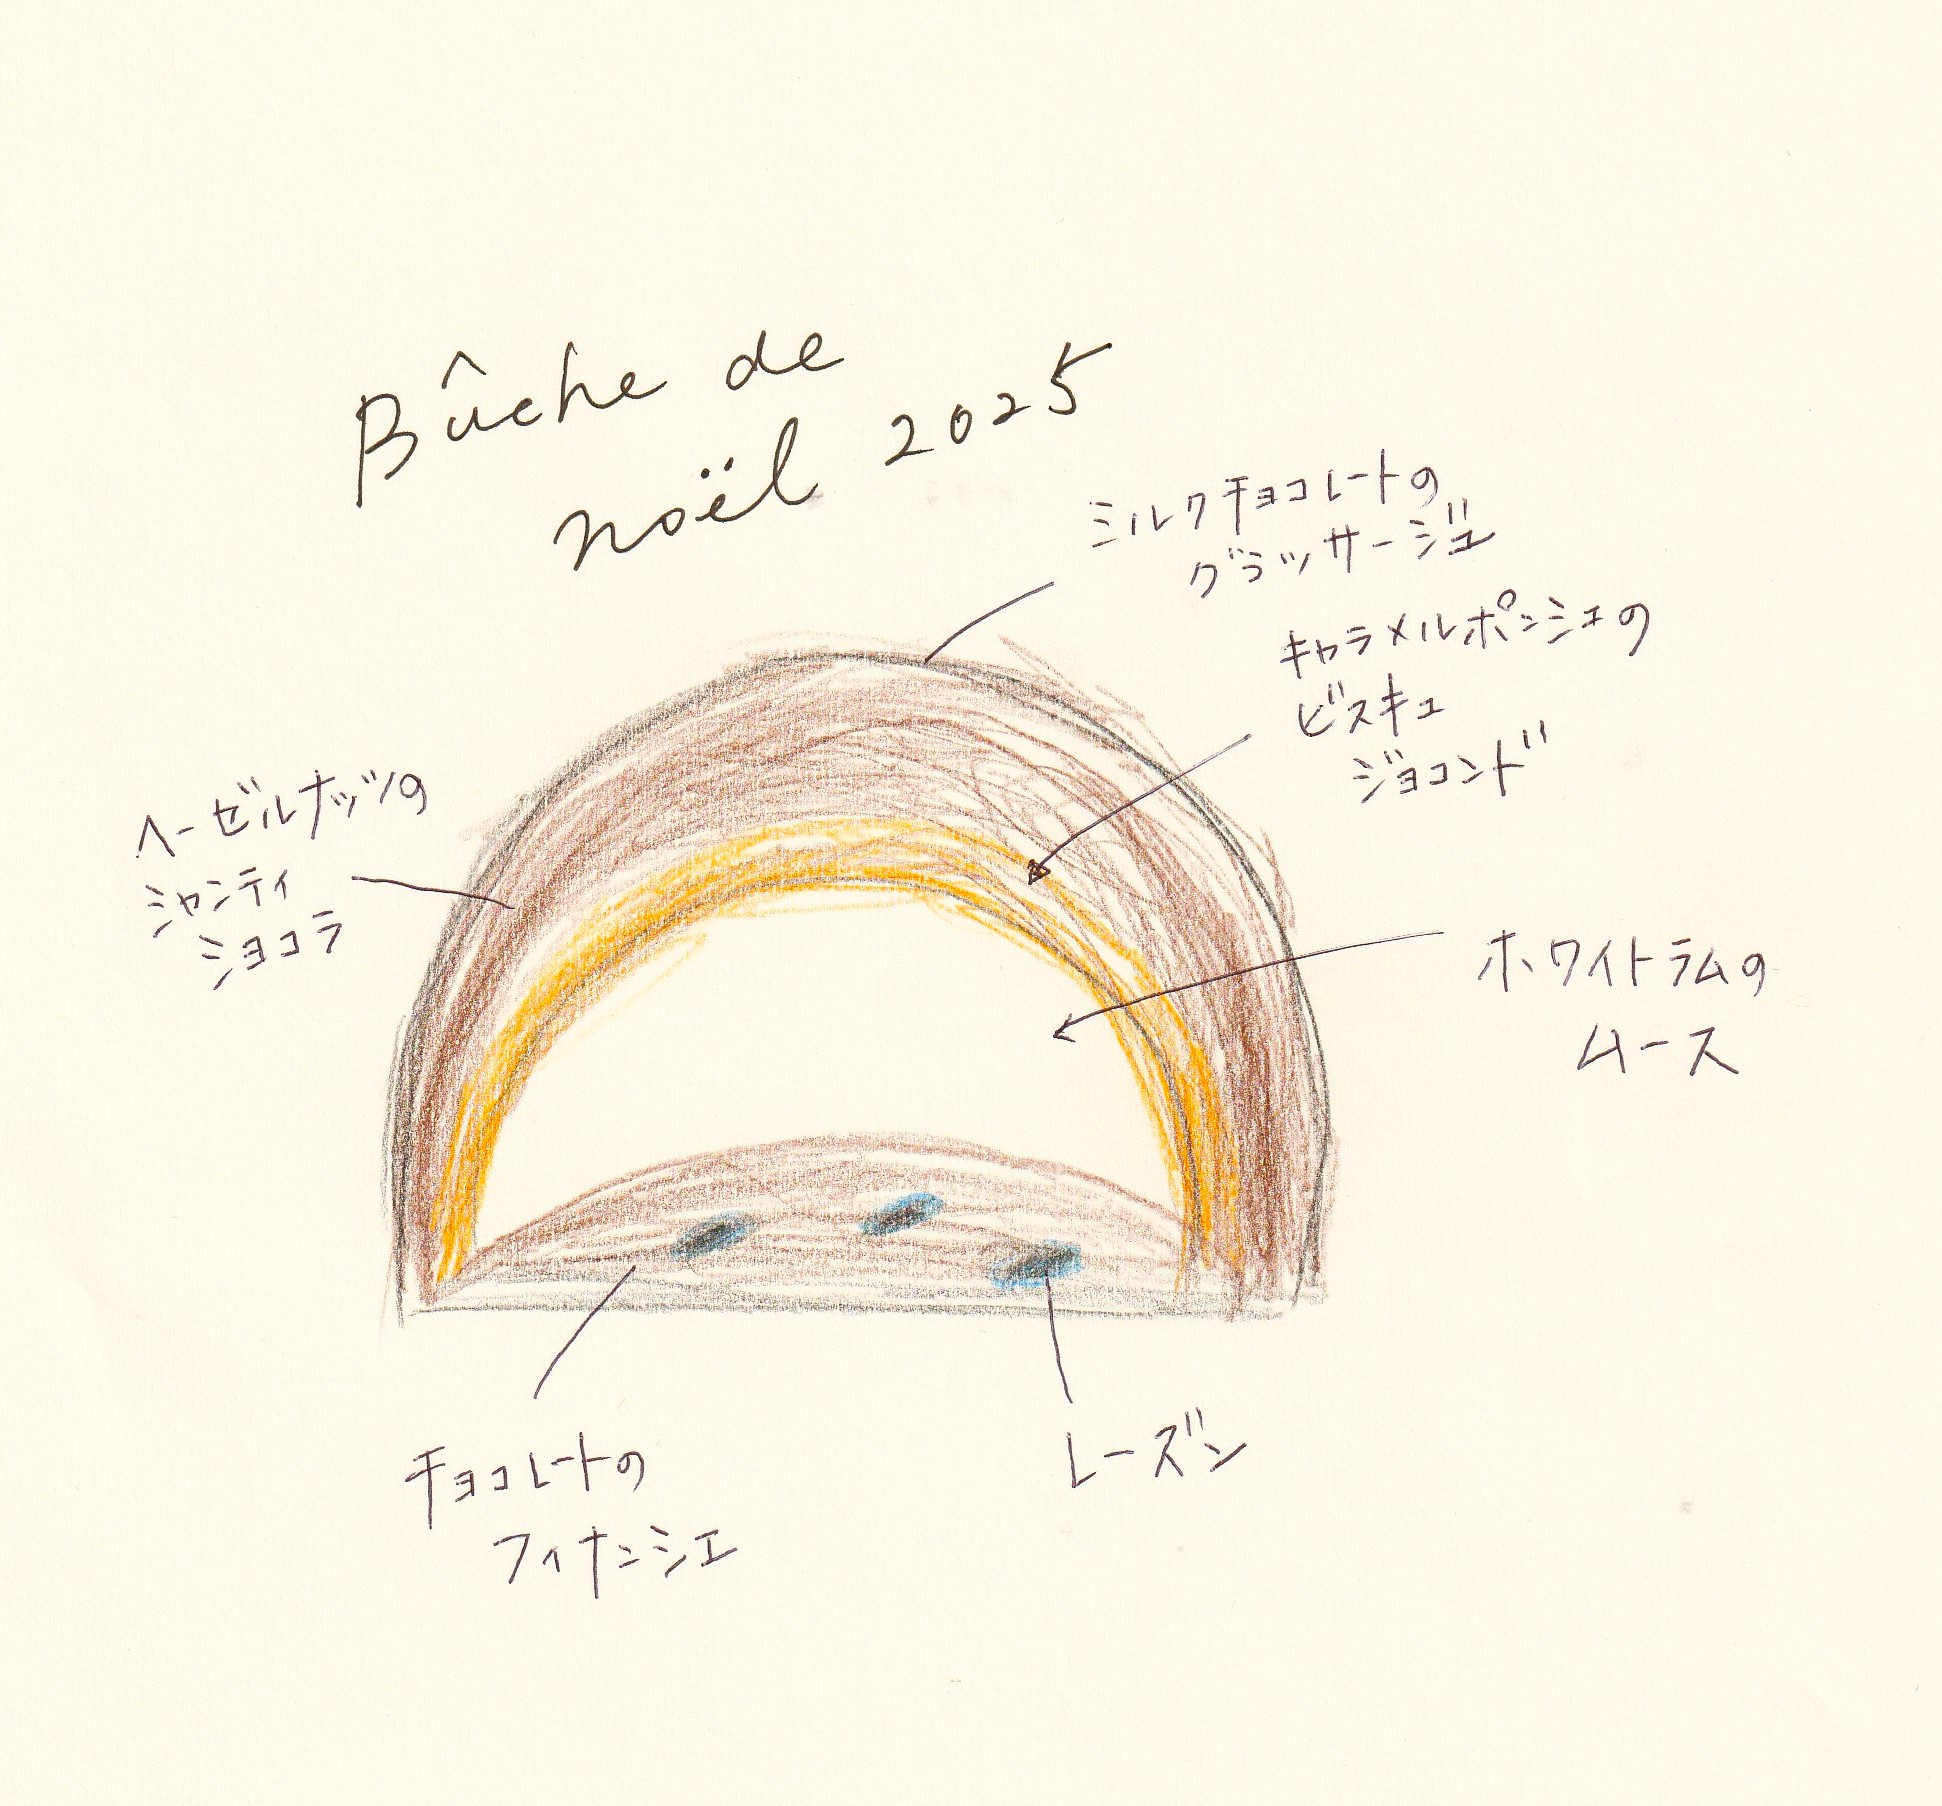 Bûche de
noël 2025
ミルクチョコレートの
グラッサージュ
キャラメルポンシェの
ビスキュ
ジョコンド
ヘーゼルナッツの
シャンティ
ショコラ
ホワイトラムの
ムース
チョコレートの
フィナンシェ
レーズン